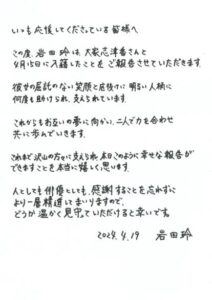 いつも応援してくださっている皆様へ
この度、岩田玲は、大家志津香さんと
4月15日に入籍したことをご報告させていただきます
彼女の屈託のない笑顔と底抜けに明るい人柄に
何度も助けられ、支えられています
これからもお互いの夢に向かい、二人で力を合わせ
共に歩んでいきます
これまで沢山の方々に支えられ、本日このように幸せな報告が
できますことを本当に嬉しく思います
人としても俳優としても、感謝することを忘れずに
より一層精進してまいりますので、
どうか温かく見守っていただけると幸いです。
2024.4.19 岩田玲